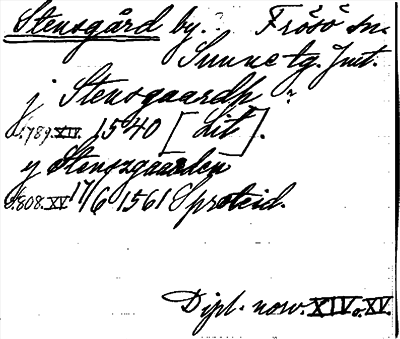 Stensgård by. Frösö sn.
Sunne tg. Jmt.
j Stensgaardh ?
d. 789. XIV. 1540 [Lit].
y Stenszgaarden
d. 808. XV 17/6 1561 Sproteid.
Dipl. norv. XIV o. XV.